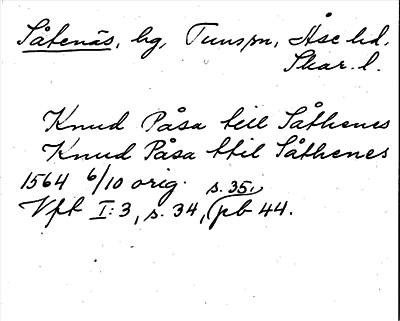 Såtenäs, hg, Tunspn, Åse hd.
Skar. l.
Knud Påsa till Såthenes
Knud Påsa ttil Såthenes
1564 6/10 orig. s. 35,
Vft I:3, s. 34, pb 44.